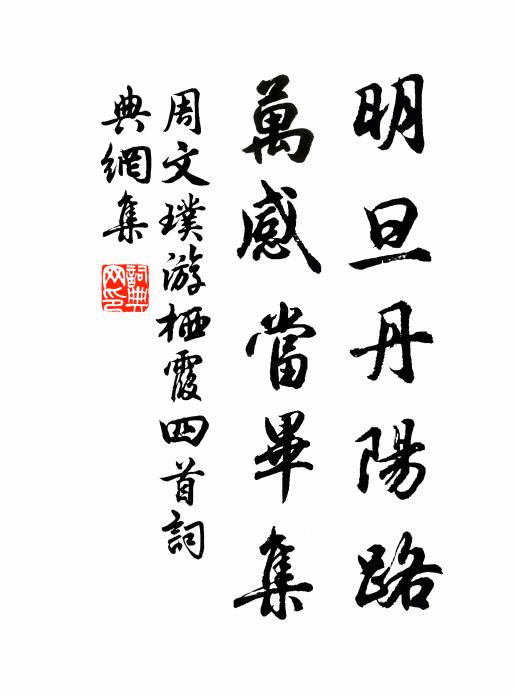 明旦丹陽路
萬感當畢集
周文璞游栖霞四首詞
典網集
詞典
网印